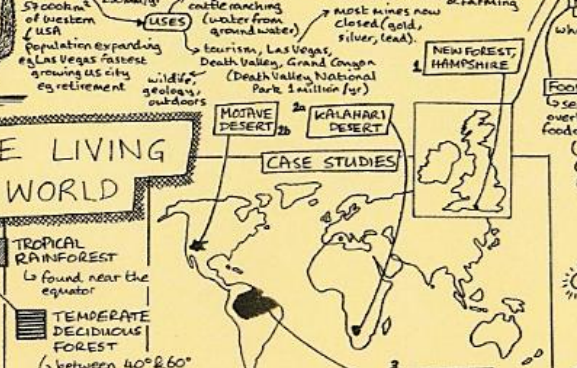 57000km²
of western
USA
population expanding
eg Las Vegas fastest
growing US city
eg retirement
USES
cattle ranching
(water from
ground water)
tourism, Las Vegas,
Death Valley, Grand Canyon
(Death Valley National
Park 1 million/yr)
wildlife,
geology,
outdoors
most mines now
closed (gold,
silver, lead).
of farming
1 NEW FOREST,
HAMPSHIRE
MOJAVE
DESERT 2b
2a KALAHARI
DESERT
CASE STUDIES
E LIVING
WORLD
TROPICAL
RAINFOREST
↳ found near the
equator
TEMPERATE
DECIDUOUS
FOREST
(↳ between 40° & 60°
3